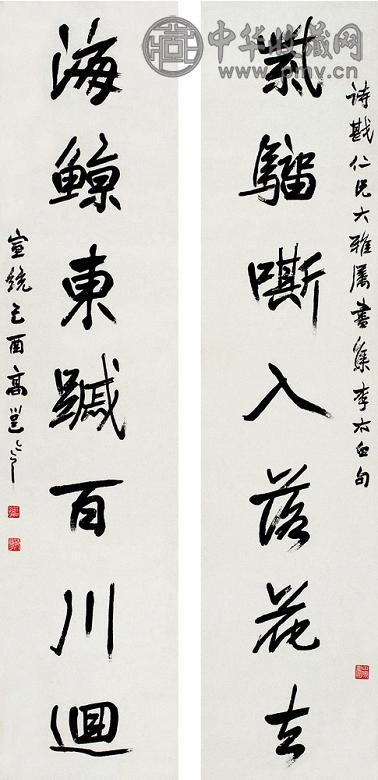 中华收藏网
詩戡仁兄大雅屬書集李太白句
紫騮嘶入落花去
海鯨東蹙百川迴
宣統己酉高邕之